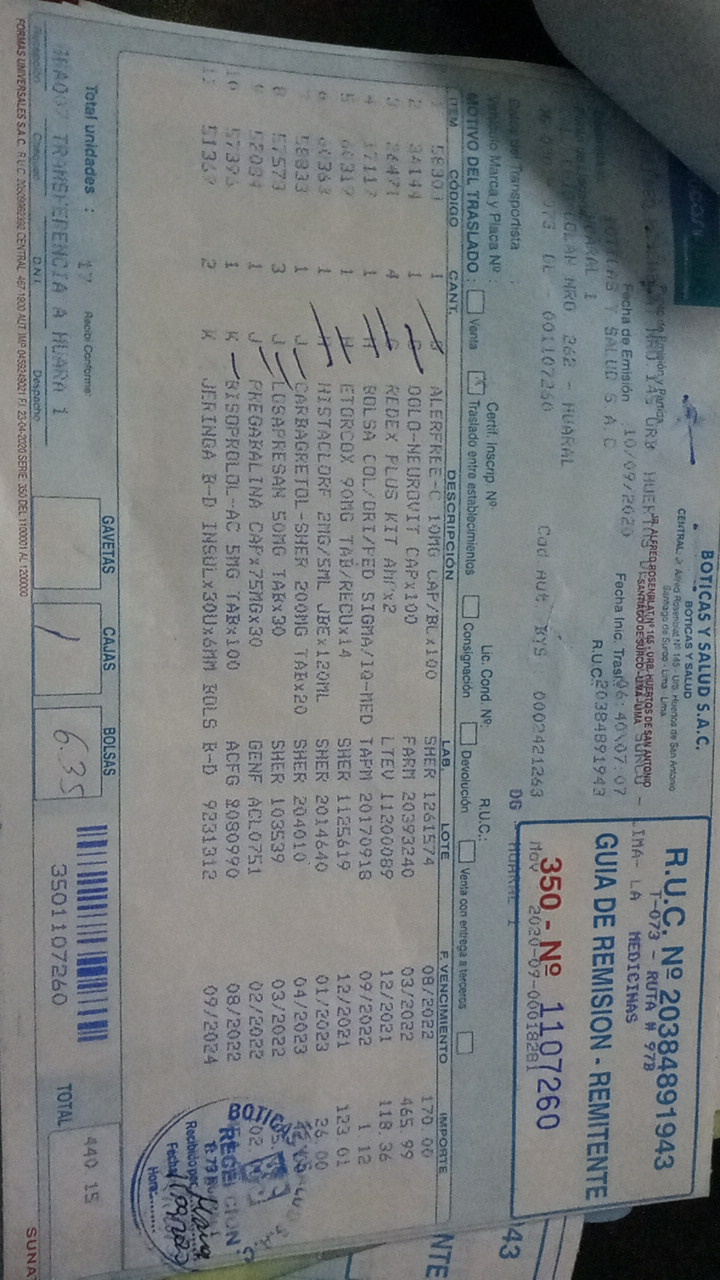 BOTICAS Y SALUD S.A.C.
BOTICAS Y SALUD
CENTRAL: Jr. Alfred Rosenblat Nº 145 - Urb. Huertos de San Antonio
Santiago de Surco - Lima - Lima
JR. ALFREDO ROSENBLAT Nº 165 - URB. HUERTOS DE SAN ANTONIO
SANTIAGO DE SURCO - LIMA - LIMA
R.U.C. Nº 20384891943
T-073 - RUTA # 97B
GUIA DE REMISION - REMITENTE
MEDICINAS
350 - Nº 1107260
Nov 2020-09-00018281
NRO 145 URB HUERTOS
SURCO - LIMA- LA
Fecha de Emisión 10/09/2020
Fecha Inic. Trasl. 06:40\07:07
Y SALUD S.A.C
R.U.C.: 20384891943
HUARAL 1
NRO 262 - HUARAL
Cod Aut BYS : 0002421263
DG : HUARAL 1
- 001107260
Transportista :
R.U.C.:
Marca y Placa Nº :
Certif. Inscrip. Nº:
Lic. Cond. Nº:
MOTIVO DEL TRASLADO : Venta X Traslado entre establecimientos Consignación Devolución Venta con entrega a terceros
ITEM CÓDIGO CANT. DESCRIPCIÓN LAB. LOTE F. VENCIMIENTO IMPORTE
1 58301 1 ALERFREE-C 10MG CAP/BLx100 SHER 1261574 08/2022 170.00
2 34144 1 DOLO-NEUROVIT CAPx100 FARM 20393240 03/2022 465.99
3 26471 4 REDEX PLUS KIT AMPx2 LTEV 11200089 12/2021 118.36
4 17117 1 BOLSA COL/ORI/PED SIGMA/IQ-MED TAPM 20170918 09/2022 1.12
5 60317 1 H ETORCOX 90MG TAB/RECUx14 SHER 1125619 12/2021 123.01
6 60363 1 HISTACLORF 2MG/5ML JBEx120ML SHER 2014640 01/2023 26.00
7 58833 1 J CARBAGRETOL-SHER 200MG TABx20 SHER 204010 04/2023
8 57573 3 J LOSAPRESAN 50MG TABx30 SHER 103539 03/2022
9 52084 1 J PREGABALINA CAPx75MGx30 GENF ACL0751 02/2022
10 57396 1 K BISOPROLOL-AC 5MG TABx100 ACFG 2080990 08/2022
11 51369 2 K JERINGA B-D INSULx30Ux6MM BOLS B-D 9231312 09/2024
BOTICAS
RECEPCION
Recibido por
Fecha
Hora
Total unidades : 17
Recibí Conforme:
GAVETAS
CAJAS
BOLSAS
/
6.35
3501107260
TOTAL
440.15
TRANSFERENCIA A HUARA 1
Recepción
D.N.I.
Despacho
FORMAS UNIVERSALES S.A.C.
SERIE: 350 DEL 1100001 AL 1200000
SUNA
43
NTE